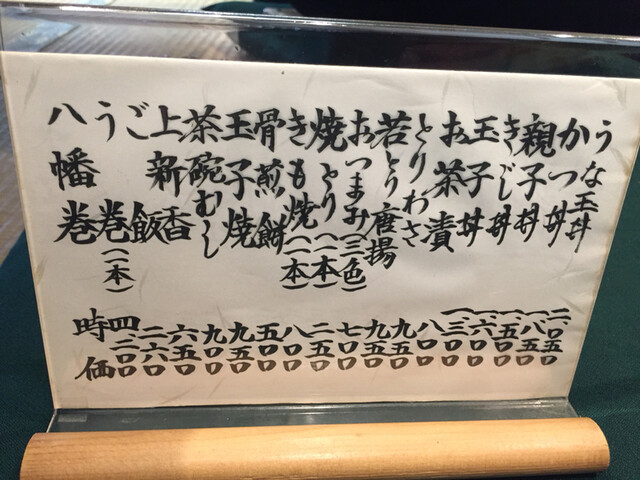 うな玉丼 二、〇五〇
かつ丼 一、八五〇
親子丼 一、五〇〇
きじ丼 一、六〇〇
玉子丼 一、三〇〇
お茶漬 八〇〇
とりわさ 九五〇
若とり唐揚 九五〇
おつまみ(三色) 七〇〇
焼とり(一本) 二五〇
きも焼(一本) 八〇〇
骨煎餅 五〇〇
玉子焼 九五〇
茶碗むし 九〇〇
上新香 六五〇
ご飯 二六〇
う巻(一本) 四二〇〇
八幡巻 時価